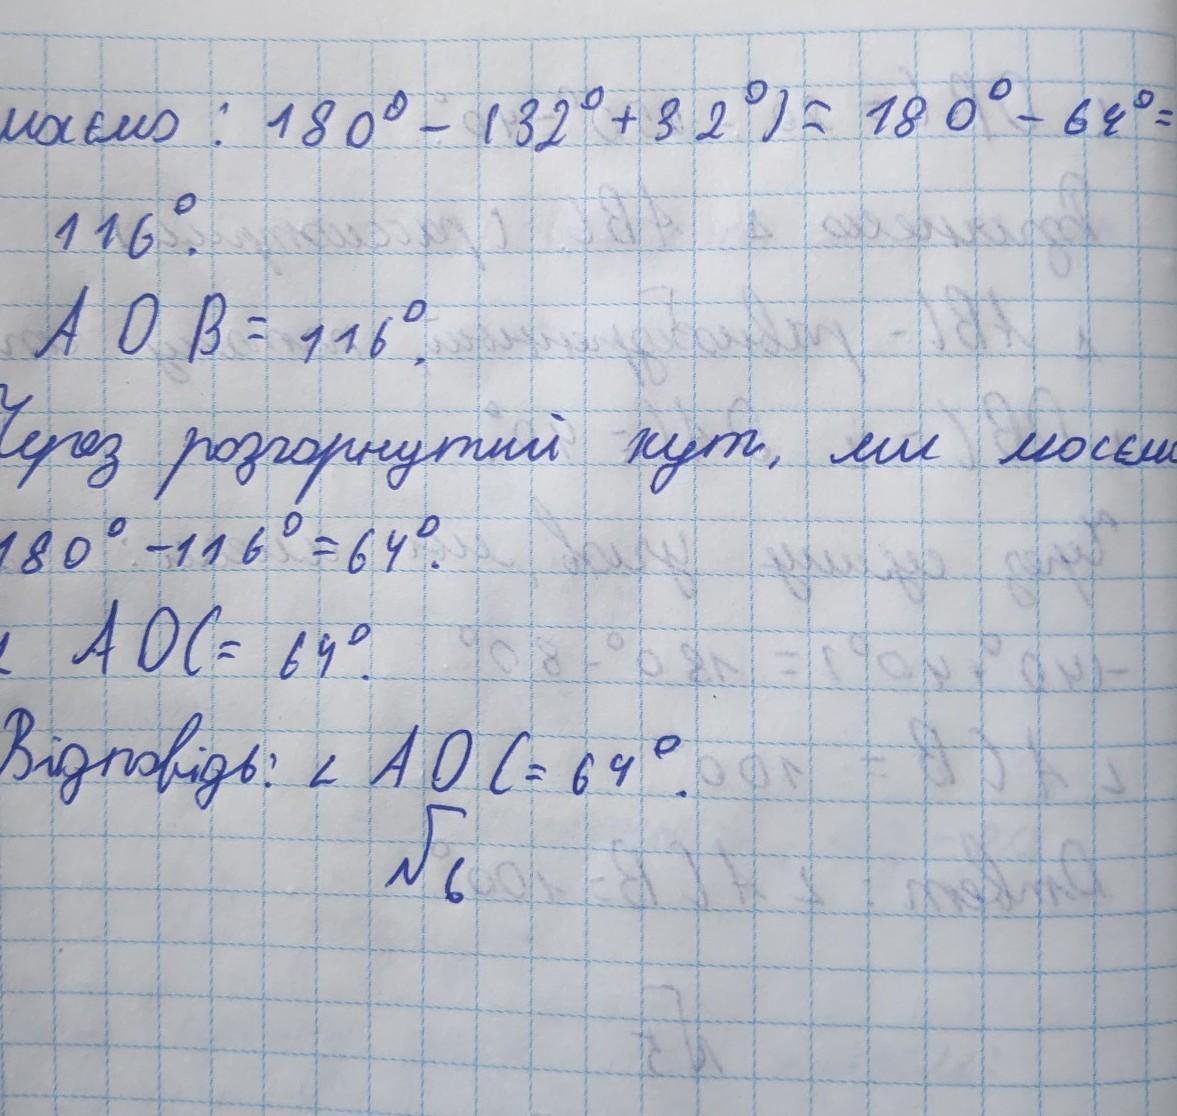 маємо : 180° - (32° + 32°) = 180° - 64° =
116°.
A O B = 116°.
Через розгорнутий кут, ми маєм
180° - 116° = 64°.
∠ AOC = 64°.
Відповідь: ∠ AOC = 64°.
№6